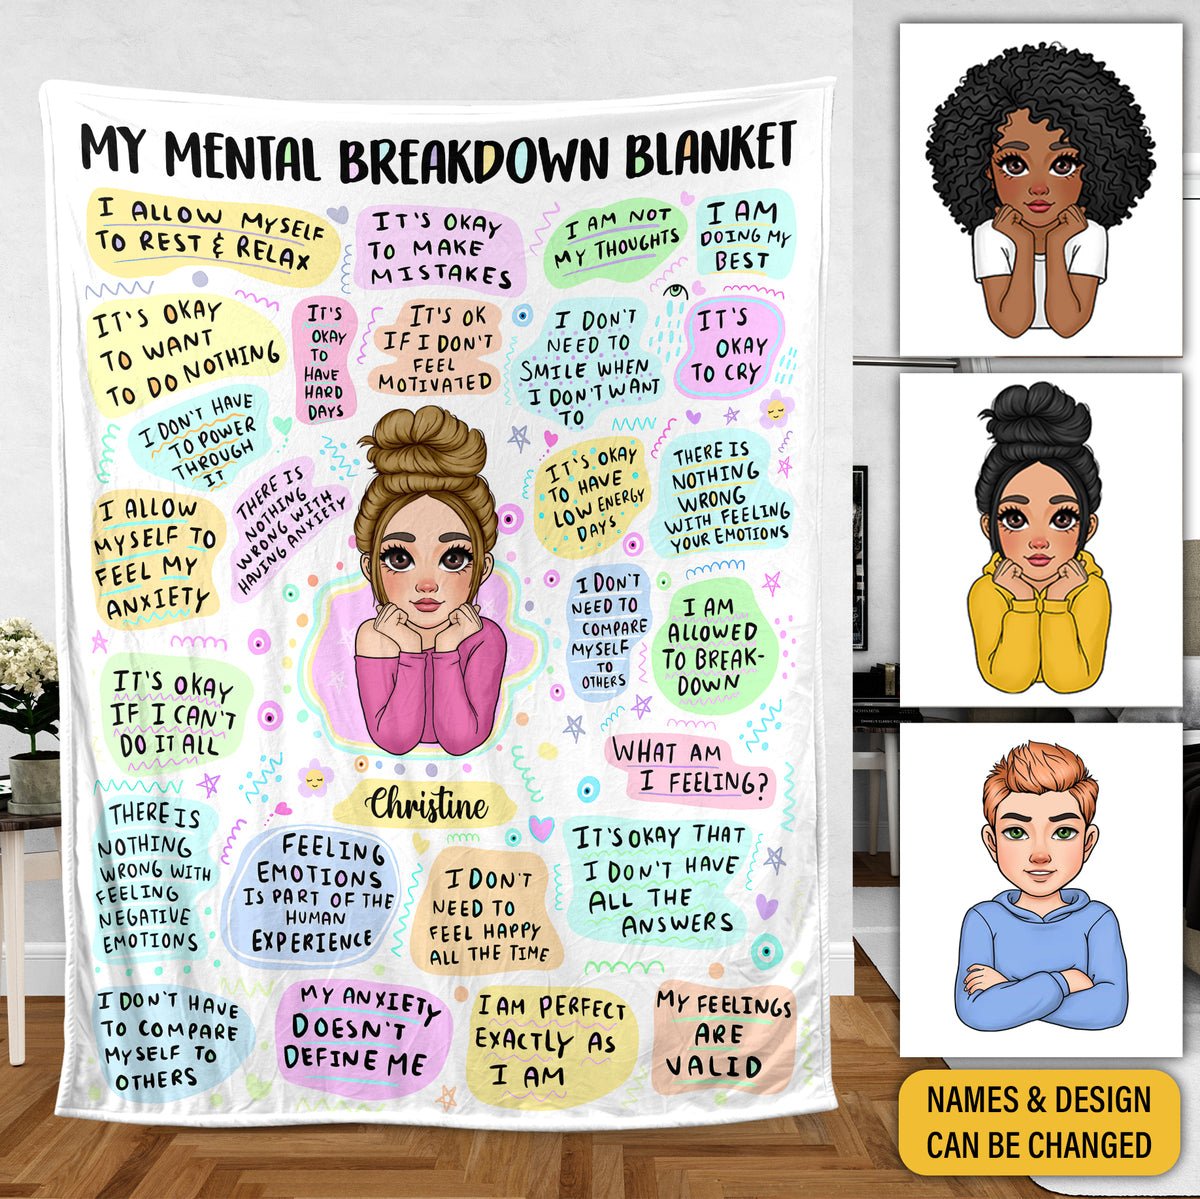 MY MENTAL BREAKDOWN BLANKET
I ALLOW MYSELF
TO REST & RELAX
IT'S OKAY
TO MAKE
MISTAKES
I AM NOT
MY THOUGHTS
I AM
DOING MY
BEST
IT'S OKAY
TO WANT
TO DO NOTHING
IT'S
OKAY
TO
HAVE
HARD
DAYS
IT'S OK
IF I DON'T
FEEL
MOTIVATED
I DON'T
NEED TO
SMILE WHEN
I DON'T WANT
TO
IT'S
OKAY
TO CRY
I DON'T HAVE
TO POWER
THROUGH
IT
THERE IS
NOTHING
WRONG WITH
HAVING ANXIETY
IT'S OKAY
TO HAVE
LOW ENERGY
DAYS
THERE IS
NOTHING
WRONG
WITH FEELING
YOUR EMOTIONS
I ALLOW
MYSELF TO
FEEL MY
ANXIETY
I DON'T
NEED TO
COMPARE
MYSELF
TO
OTHERS
I AM
ALLOWED
TO BREAK-
DOWN
IT'S OKAY
IF I CAN'T
DO IT ALL
WHAT AM
I FEELING?
Christine
THERE IS
NOTHING
WRONG WITH
FEELING
NEGATIVE
EMOTIONS
FEELING
EMOTIONS
IS PART OF THE
HUMAN
EXPERIENCE
I DON'T
NEED TO
FEEL HAPPY
ALL THE TIME
IT'S OKAY THAT
I DON'T HAVE
ALL THE
ANSWERS
I DON'T HAVE
TO COMPARE
MYSELF TO
OTHERS
MY ANXIETY
DOESN'T
DEFINE ME
I AM PERFECT
EXACTLY AS
I AM
MY FEELINGS
ARE
VALID
NAMES & DESIGN
CAN BE CHANGED